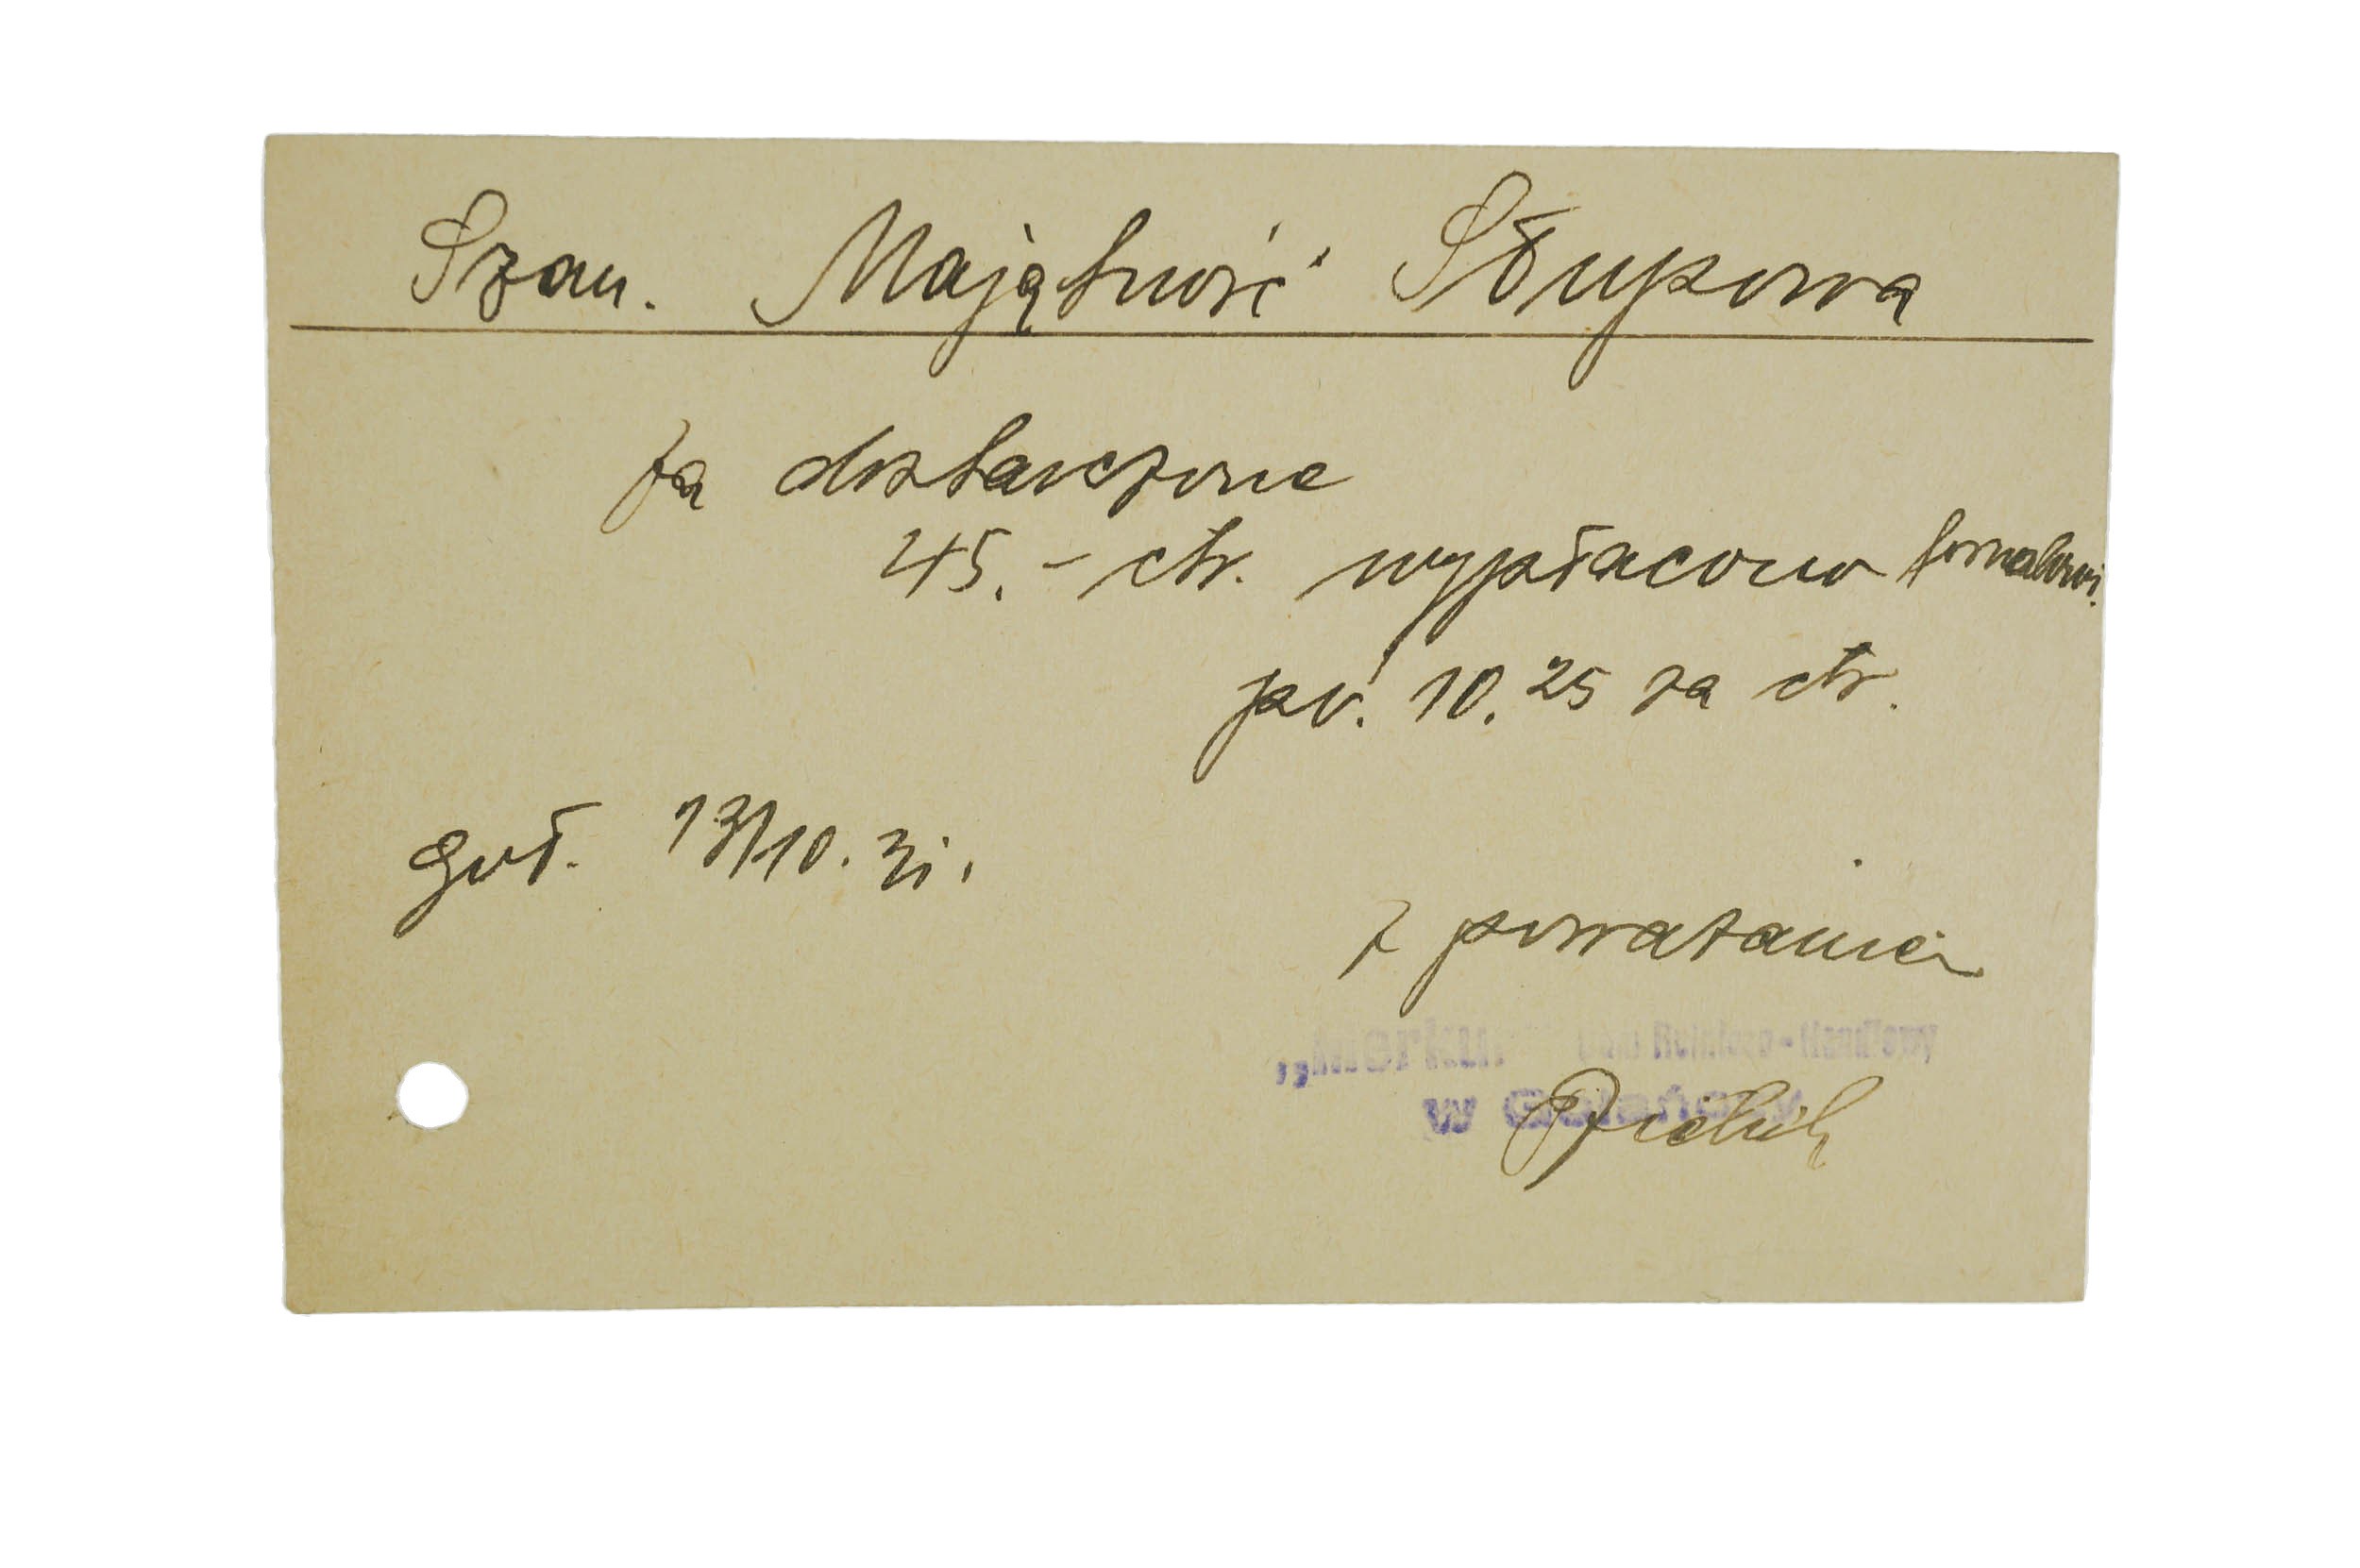 Szan. Majątność Słupowa
za dostarczone
45.- ctr. wypłacono fornalowi.
po. 10.25 za ctr.
Goł. 13/10. 31.
z poważaniem
„Merkur Dom Rolniczo-Handlowy
w Gołańczy